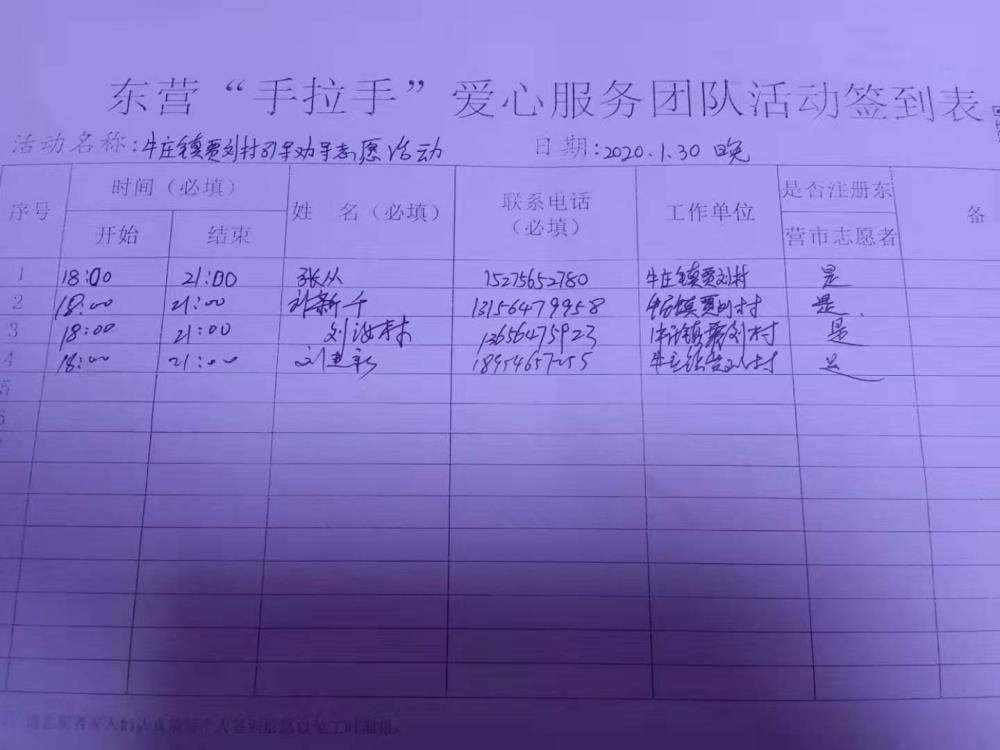 东营“手拉手”爱心服务团队活动签到表
活动名称：牛庄镇贾刘村引导劝导志愿活动 日期：2020.1.30 晚
序号 时间（必填） 姓 名（必填） 联系电话（必填） 工作单位 是否注册东营市志愿者 备
开始 结束
1 18:00 21:00 张从 15275652780 牛庄镇贾刘村 是
2 18:00 21:00 新千 13156479958 牛庄镇贾刘村 是
3 18:00 21:00 刘汝村 13656475923 牛庄镇贾刘村 是
4 18:00 21:00 刘 18954657255 牛庄镇贾刘村 是
5
6